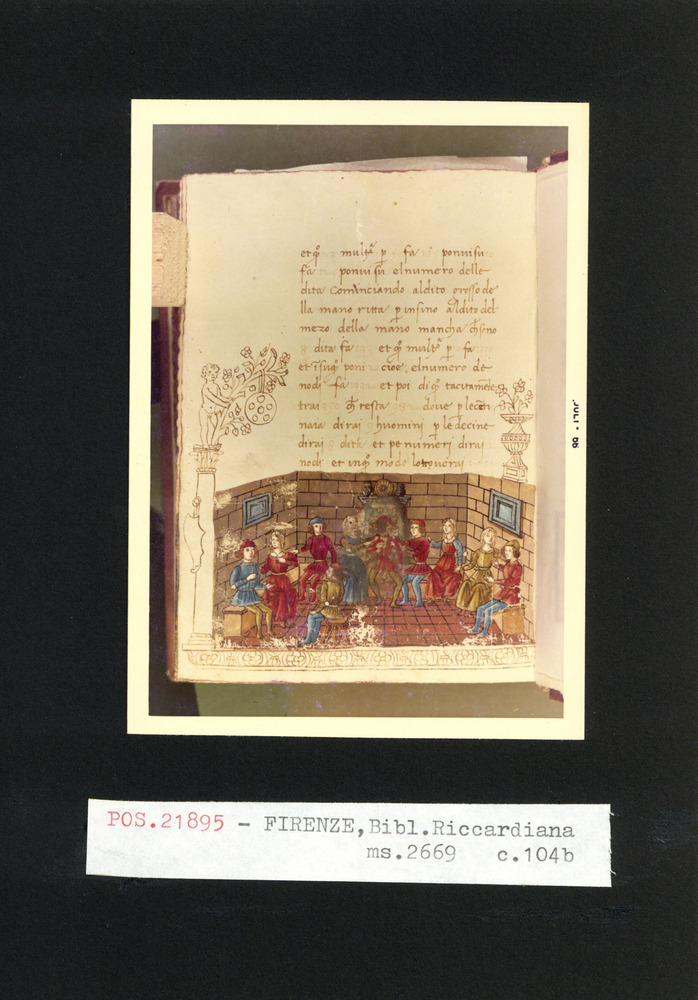 et qͦ multᵃ p fa ponvi su
fa ponvi sū el numero delle
dita Cominciando al dito grosso de
lla mano ritta p insino al dito del
mezo della mano mancha
dita fa et qͦ multᵃ p fa
et poni cioe el numero de
nodi fa et poi di qͦ tacitamēte
trai resta dove p le
naia dirai huomini p le decine
dirai dita et pe numeri dirai
nodi et modo lo troverai
JULI • 68
POS.21895 - FIRENZE,Bibl.Riccardiana
ms.2669 c.104b